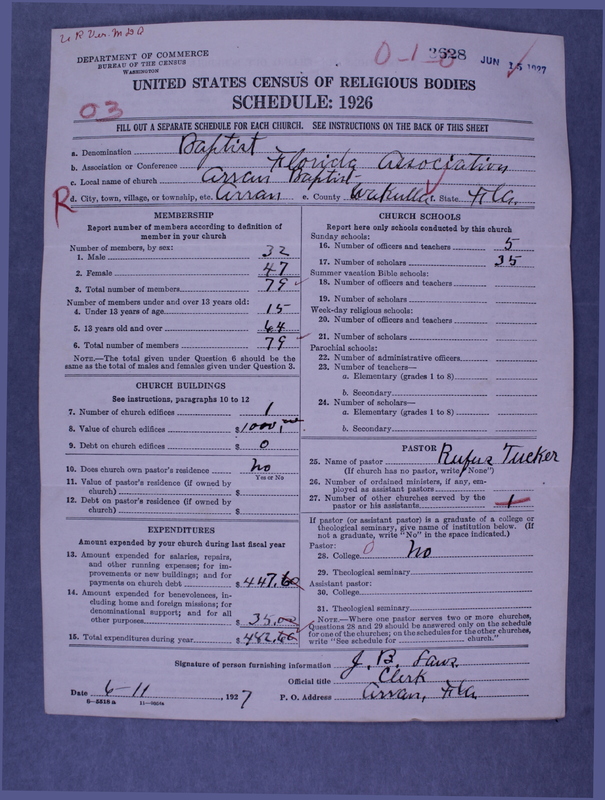 U R Ver. M D D
DEPARTMENT OF COMMERCE
BUREAU OF THE CENSUS
WASHINGTON
0-1-0
2628
JUN 15 1927
UNITED STATES CENSUS OF RELIGIOUS BODIES
SCHEDULE: 1926
03
FILL OUT A SEPARATE SCHEDULE FOR EACH CHURCH. SEE INSTRUCTIONS ON THE BACK OF THIS SHEET
a. Denomination Baptist
b. Association or Conference Florida Association
c. Local name of church Arran Baptist
R
d. City, town, village, or township, etc. Arran e. County Wakulla f. State Fla.
MEMBERSHIP
Report number of members according to definition of
member in your church
Number of members, by sex:
1. Male 32
2. Female 47
3. Total number of members 79
Number of members under and over 13 years old:
4. Under 13 years of age 15
5. 13 years old and over 64
6. Total number of members 79
NOTE.—The total given under Question 6 should be the
same as the total of males and females given under Question 3.
CHURCH BUILDINGS
See instructions, paragraphs 10 to 12
7. Number of church edifices 1
8. Value of church edifices $1000,
9. Debt on church edifices $ 0
10. Does church own pastor's residence no
Yes or No
11. Value of pastor's residence (if owned by
church) $
12. Debt on pastor's residence (if owned by
church) $
EXPENDITURES
Amount expended by your church during last fiscal year
13. Amount expended for salaries, repairs,
and other running expenses; for im-
provements or new buildings; and for
payments on church debt $ 447.
14. Amount expended for benevolences, in-
cluding home and foreign missions; for
denominational support; and for all
other purposes $ 35.00
15. Total expenditures during year $ 482.
CHURCH SCHOOLS
Report here only schools conducted by this church
Sunday schools:
16. Number of officers and teachers 5
17. Number of scholars 35
Summer vacation Bible schools:
18. Number of officers and teachers
19. Number of scholars
Week-day religious schools:
20. Number of officers and teachers
21. Number of scholars
Parochial schools:
22. Number of administrative officers
23. Number of teachers—
a. Elementary (grades 1 to 8)
b. Secondary
24. Number of scholars—
a. Elementary (grades 1 to 8)
b. Secondary
PASTOR
25. Name of pastor Rufus Tucker
(If church has no pastor, write "None")
26. Number of ordained ministers, if any, em-
ployed as assistant pastors
27. Number of other churches served by the
pastor or his assistants 1
If pastor (or assistant pastor) is a graduate of a college or
theological seminary, give name of institution below. (If
not a graduate, write "No" in the space indicated.)
Pastor:
28. College 0 no
29. Theological seminary
Assistant pastor:
30. College
31. Theological seminary
NOTE.—Where one pastor serves two or more churches,
Questions 28 and 29 should be answered only on the schedule
for one of the churches; on the schedules for the other churches,
write "See schedule for church."
Signature of person furnishing information J. B.
Official title Clerk
Date 6-11, 1927 P. O. Address Arran, Fla
6-5518 a